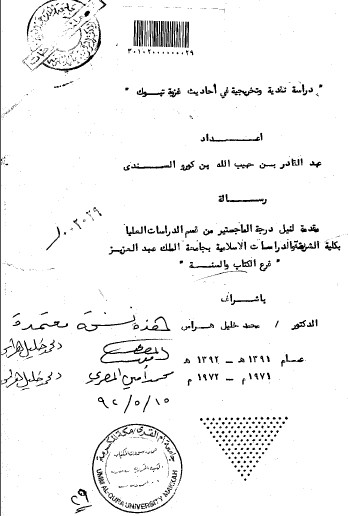 ٣٠١٠٢٠٠٠٠٠٠٢٩
" دراسة نقدية وتخريجية في أحاديث غزوة تبوك "
اعـــداد
عبد القادر بن حبيب الله بن كورو السندى
رسالة
مقدمة لنيل درجة الماجستير من قسم الدراسات العليا
بكلية الشريعة والدراسات الاسلامية بجامعة الملك عبد العزيز
" فرع الكتاب والسنة "
باشراف
الدكتور / محمد خليل هراس
هذه نسخة معتمدة
عام ١٣٩١ هـ - ١٣٩٢ هـ
١٩٧١ م - ١٩٧٢ م
محمد أمين المصري
د محمد خليل هراس
د محمد خليل هراس
٩٢/٥/١٥
٠٠٢٠٢٩
جامعة أم القرى مكة المكرمة
UMM AL-QURA UNIVERSITY MAKKAH
٢٩